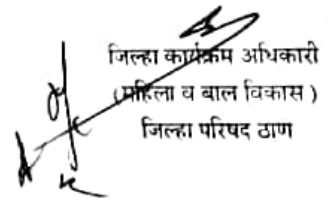 जिल्हा कार्यक्रम अधिकारी
(महिला व बाल विकास )
जिल्हा परिषद ठाण